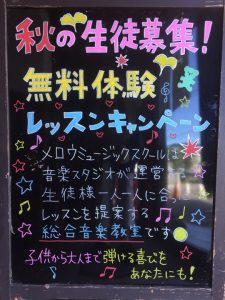 秋の生徒募集!
無料体験
レッスンキャンペーン
メロウミュージックスクールは
音楽スタジオが運営する
生徒様一人一人に合っ
レッスンを提案する
総合音楽教室です
子供から大人まで弾ける喜びを
あなたにも!